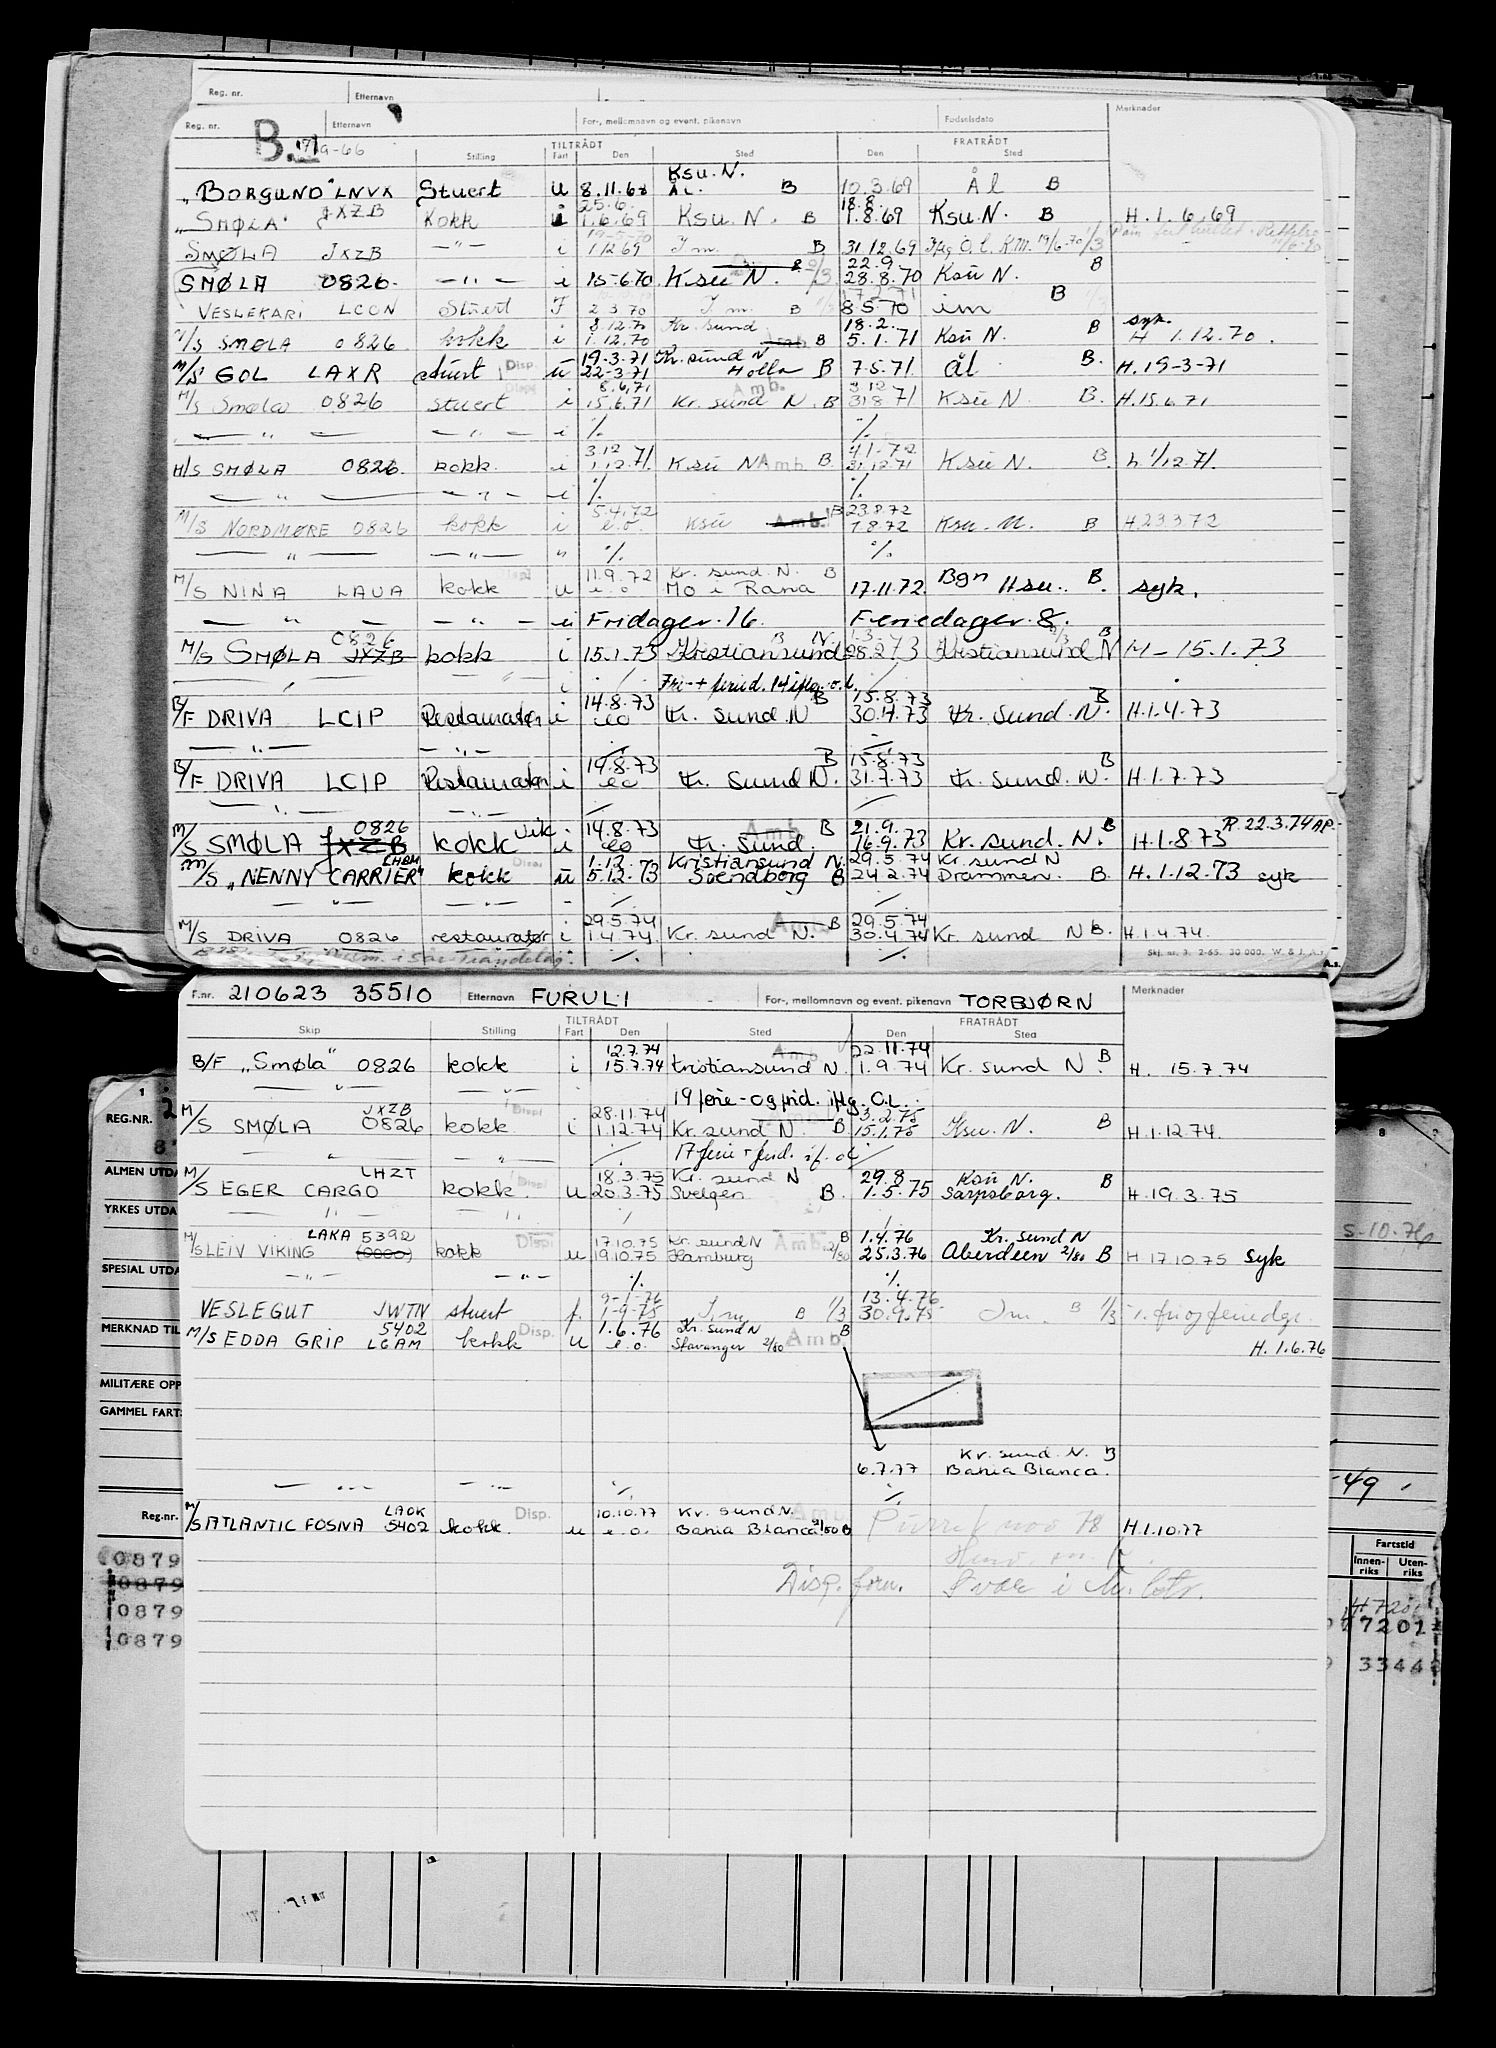 Reg. nr. Etternavn
Reg. nr. Etternavn For-, mellomnavn og event. pikenavn Fødselsdato Merknader
B. 17/9-66
TILTRÅDT FRATRÅDT
Stilling Fart Den Sted Den Sted
Ksu. N.
"BORGUND" LNVX Stuert u 8.11.68 ÅL. B 10.3.69 Ål B
25.6. 18.8.
"SMØLA" JXZB Kokk i 1.6.69 Ksu. N. B 1.8.69 Ksu N. B H. 1. 6. 69
SMØLA JXZB —"— i 1.12 69 I m. B 31.12.69
22.9.
SMØLA 0826. —"— i 15.6.70 Ksu N. 28.8.70 Ksu N. B
VESLEKARI LCCN Stuert F 2 3.70 I m. B 8 5 70 im B
8.12.70 Kr. sund 18.2. syk.
M/S SMØLA 0826 kokk i 1.12.70 B 5.1.71 Ksu N. B H 1.12.70.
19-3-71 Kr. sund N
M/S GOL LAXR stuert Disp. u 22-3-71 Holla B 7.5.71 ål B. H. 19-3-71
8.6.71 Amb. 3 12
M/S Smøla 0826 stuert i 15.6.71 Kr. sund N. B 31 8 71 Ksu N B. H.15.6.71
— " — — " — i % %
3.12 4.1.72
M/S SMØLA 0826. kokk. i 1.12.71. Ksu N Amb. B. 31.12.71 Ksu N. B. h 1/12.71.
— " — — " — i % %
5.4.72 23.8.72
M/S NORDMØRE 0826 kokk i e.o. Ksu Amb. B 7.8.72 Ksu. N. B H.23.3.72
— " — — " — " % %
11.9.72 Kr. sund. N. B
M/S NINA LAUA kokk u e.o Mo i Rana 17.11.72. Bgn Hsu. B. syk.
— " — — " — u Fridager. 16. Feriedager. 8.
0826
M/S SMØLA JXZB kokk i 15.1.73 Kristiansund N. B 28.2.73 Kristiansund N B H — 15.1.73
Fri- + feried. 14 iflg. o.l.
14.8.73 15.8.73
B/F DRIVA LCIP Restauratør i eo Kr. Sund. N B 30.4.73 Kr. Sund. N. B H.1.4.73
— " — — " —
14.8.73 15.8.73
B/F DRIVA LCIP Restauratør i eo Kr. Sund. N. B 31.7.73 Kr. Sund. N. B H.1.7.73
— " — — " —
0826 vik. 14.8.73 Amb 21.9. R. 22.3.74 AP.
M/S SMØLA JXZB kokk i eo Kr. Sund. B 16.9.73 Kr. sund. N. B H.1.8.73
1.12. Kristiansund N. 29.5.74 Kr. sund N
M/S "NENNY CARRIER" kokk u 5.12.73 Svendborg B 24 2.74 Drammen. B. H. 1.12.73 syk
— " — — " — -
29.5.74 Amb B 29.5.74
M/S DRIVA 0826 restauratør i 1.4.74 Kr. sund N. 30.4.74 Kr. sund N B. H.1.4.74.
Skj. nr. 3. 2-65. 30 000. W. & J. A.s
F.nr. 210623 35510 Etternavn FURULI For-, mellomnavn og event. pikenavn TORBJØRN Merknader
TILTRÅDT FRATRÅDT
Skip Stilling Fart Den Sted Den Sted
12.7.74 Amb 22.11.74
B/F "Smøla" 0826 kokk i 15.7.74 Kristiansund N. 1.9.74 Kr. sund N. B H. 15.7.74
— " — — " — 19 ferie- og frid. iflg. O.L.
JXZB Displ 28.11.74 3.2.75
M/S SMØLA 0826 kokk. i 1.12.74 Kr. sund N. B 15.1.75 Ksu. N. B H.1.12.74.
— " — — " — 17 ferie + frid. if. oL
LHZT 18.3.75 Kr. sund N 29.8 Ksu N.
M/S EGER CARGO kokk. u 20.3.75 Svelgen B. 1.5.75 Sarpsborg. B H.19.3.75
— " — — " —
LAKA 5392 17.10.75 Kr. sund N Amb. B 1.4.76 Kr. sund N
M/S LEIV VIKING (0000) kokk u 19.10.75 Hamburg 2/80 25.3.76 Aberdeen 2/80 B H 17.10.75 Syk
— " — — " — % %
9-1-76 13.4.76
VESLEGUT JWTN stuert f. 1-9-75 I m B 1/3 30.9.75 Im. B 1/3
5402 Disp. 1.6.76 Kr. sund N Amb B
M/S EDDA GRIP LGAM kokk u e.o. Stavanger 2/80 H. 1.6.76
Kr. sund. N. B
6.7.77 Bahia Blanca.
— " — — " — % %
LAOK Disp. 10.10.77 Kr. sund N. Amb
M/S ATLANTIC FOSNA 5402 kokk. u e.o. Bahia Blanca 2/80 B Purret nov 78 H.1.10.77
Disp. forn.
REG.NR. 2
ALMEN UTDA
YRKES UTDA
5.10.76
SPESIAL UTDA
MERKNAD TIL
MILITÆRE OPP
GAMMEL FART:
-49
Reg.nr.
Fartstid
Innen-riks Uten-riks
0879
0879
0879
0879
7201
3344